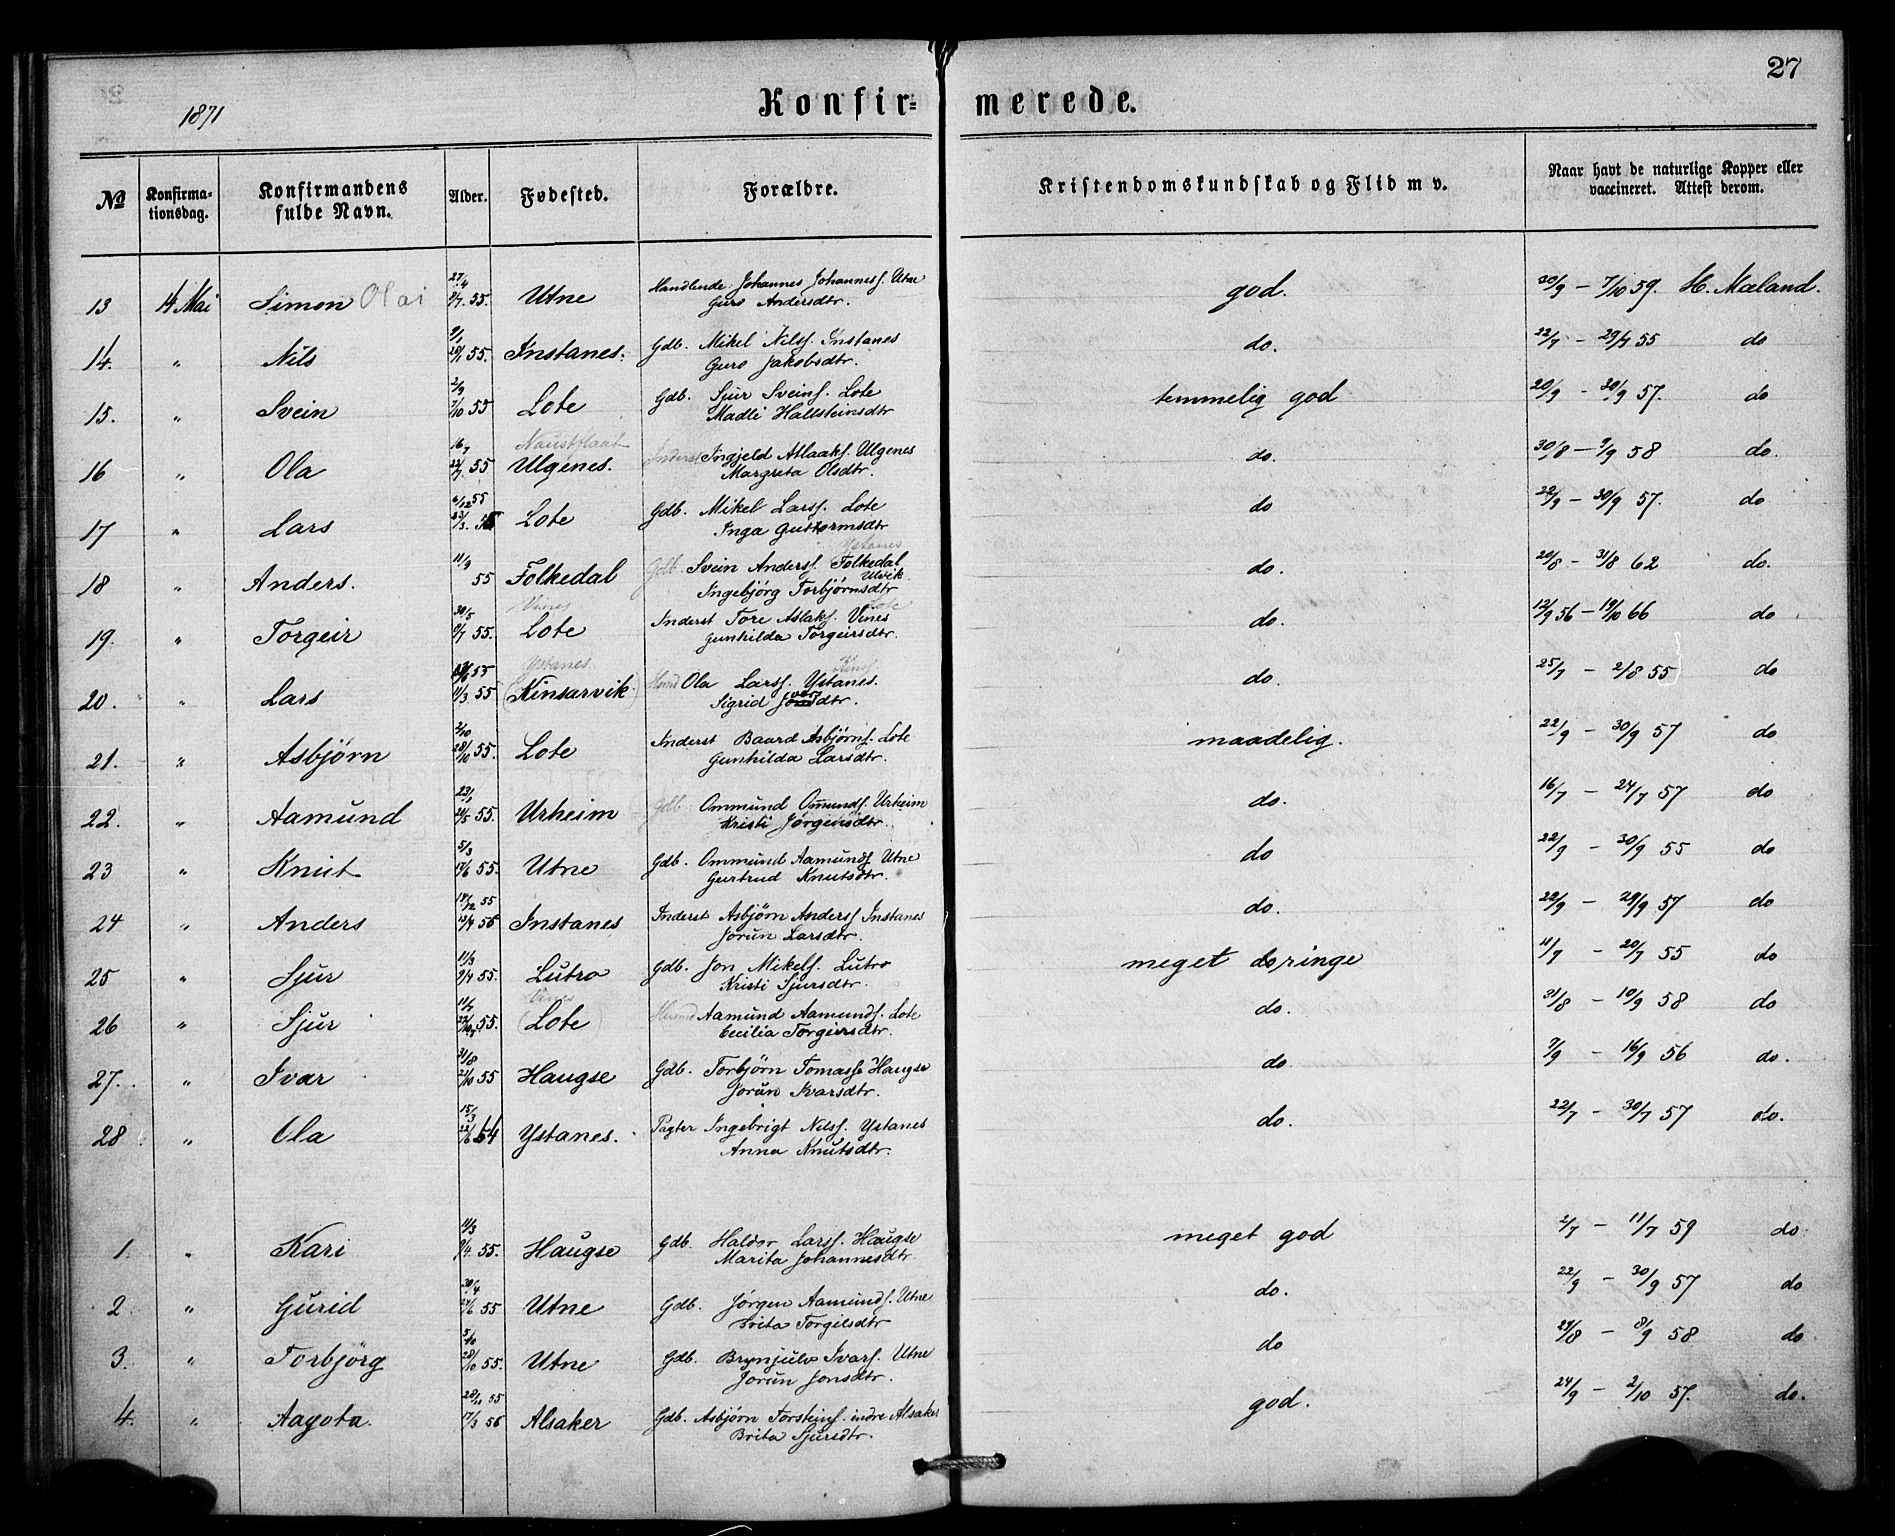 27
1871
Konfir=
merede.
No
Konfirma-
tionsdag.
Konfirmandens
fulde Navn.
Alder.
Fødested.
Forældre.
Kristendomskundskab og Flid m v.
Naar havt de naturlige Kopper eller
vaccineret. Attest derom.
13 14 Mai Simon Olai 27/4 9/7 55. Utne Handlende Johannes Johannesf. Utne god. 30/9 – 7/10 59. H. Mæland.
Guro Andersdtr.
14. " Nils 9/1 28/1 55. Instanes. Gdb. Mikel Nilsf. Instanes do. 22/7 – 29/7 55 do
Guro Jakobsdtr.
15. " Svein 2/9 7/10 55 Lote Gdb. Sjur Sveinf. Lote temmelig god 20/9 – 30/9 57. do
Madli Hallsteinsdtr
Naustflaat
16 " Ola 16/7 22/7 55 Ulgenes. Inderst Ingjeld Atlaaksf. Ulgenes do. 30/8 – 9/9 58 do.
Margreta Olsdtr.
17 " Lars 6/12 55 23/3 56 Lote Gdb. Mikel Larsf. Lote do 22/9 – 30/9 57. do
Inga Guttormsdtr
Ystanes
18 " Anders. 11/9 55 Folkedal Gdb. Svein Andersf. Folkedal do. 20/8 – 31/8 62 do.
Ulvik
Ingebjörg Torbjörnsdtr
Vines Lote
19. " Torgeir 30/5 8/7 55. Lote Inderst Tore Aslakf. Vines do. 12/9 56 – 19/10 66 do
Gunhilda Torgeirsdtr.
Ystanes. Kinsf
20. " Lars 55 11/3 55 (Kinsarvik) Husmd Ola Larsf. Ystanes. do. 25/7 – 2/8 55 do
Sigrid Jovarsdtr.
21. " Asbjørn 2/10 28/10 55. Lote Inderst Baard Asbjørnf. Lote maadelig. 22/9 – 30/9 57 do
Gunhilda Larsdtr.
22. " Aamund 23/1 24/5 55. Urheim Gdb Ommund Omundf. Urheim do. 16/7 – 24/7 57 do
Kristi Jørgensdtr.
23 " Knut 5/3 17/6 55. Utne Gdb. Ommund Aamundf Utne do 22/9 – 30/9 55 do
Gertrud Knutsdtr.
24 " Anders 14/12 55 13/4 56 Instanes Inderst Asbjörn Andersf Instanes do. 22/9 – 29/9 57 do
Jorun Larsdtr.
25 " Sjur 11/3 9/4 55. Lutro Gdb. Jon Mikelf. Lutro meget ringe 11/7 – 20/7 55 do
Kristi Sjursdtr.
Vines
26 " Sjur 11/7 55. (Lote) Husmd Aamund Aamundf. Lote do. 31/8 – 10/9 58 do
Cecilia Torgeirsdtr.
27. " Ivar 31/8 21/10 55 Haugse Gdb. Torbjörn Tomassf Haugse do. 7/9 – 16/9 56 do.
Jorun Ivarsdtr.
28 " Ola 15/3 22/6 54 Ystanes. Pagter Ingebrigt Nilsf. Ystanes do. 22/7 – 30/7 57 do.
Anna Knutsdtr.
1. " Kari 11/3 9/4. 55. Haugse Gdb. Haldor Larsf. Haugse meget god 2/7 – 11/7 59 do
Marita Johannesdtr.
2 " Gurid 30/4 24/6 55 Utne Gdb. Jörgen Aamundf. Utne do. 22/9 – 30/9 57 do
Brita Torgilsdtr.
3. " Torbjörg 5/10 28/10 55. Utne Gdb. Brynjulv Ivarf. Utne do 29/8 – 8/9 58 do
Jorun Jonsdtr.
4. " Aagota. 28/11 55 17/3 56 Alsaker Gdb. Asbjørn Torsteinf. indre Alsaker god. 24/9 – 2/10 57. do.
Brita Sjursdtr.